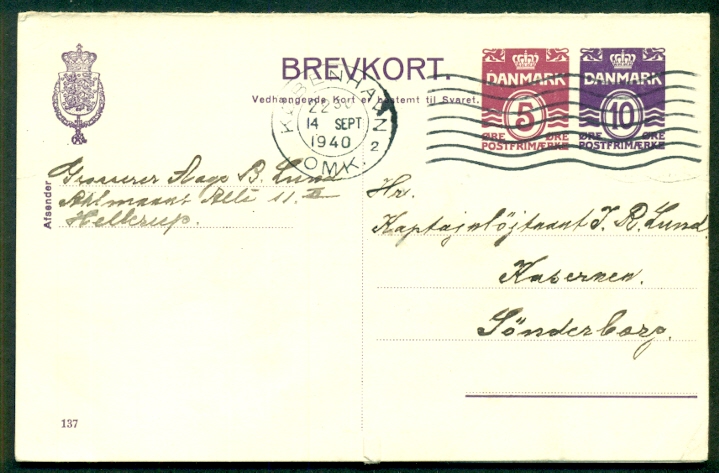 BREVKORT.
Vedhængende Kort er bestemt til Svaret.
KØBENHAVN
22
14 SEPT
1940
2
OMK.
DANMARK
5
ØRE ØRE
POSTFRIMÆRKE
DANMARK
10
ØRE ØRE
POSTFRIMÆRKE
Afsender
Grosserer Aage B. Lund
Ahlmanns Allé 11 II
Hellerup.
Hr.
Kaptajnløjtnant J. R. Lund
Kasernen.
Sønderborg.
137